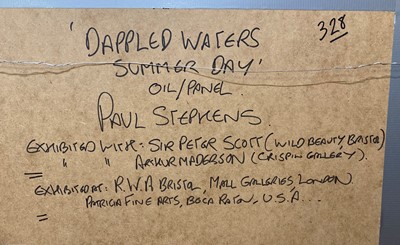 328
'DAPPLED WATERS
SUMMER DAY'
OIL/PANEL.
PAUL STEPHENS.
EXHIBITED WITH:- SIR PETER SCOTT (WILD BEAUTY BRISTOL)
" " ARTHUR MADERSON (CRISPIN GALLERY).
EXHIBITED AT: R.W.A BRISTOL, MALL GALLERIES, LONDON.
PATRICIA FINE ARTS, BOCA RATON, U.S.A...